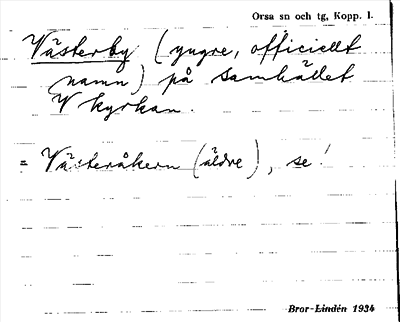 Orsa sn och tg, Kopp. l.
Västerby (yngre, officiellt
namn) på samhället
V kyrkan.
= Västeråkern (äldre), se!
Bror Lindén 1934